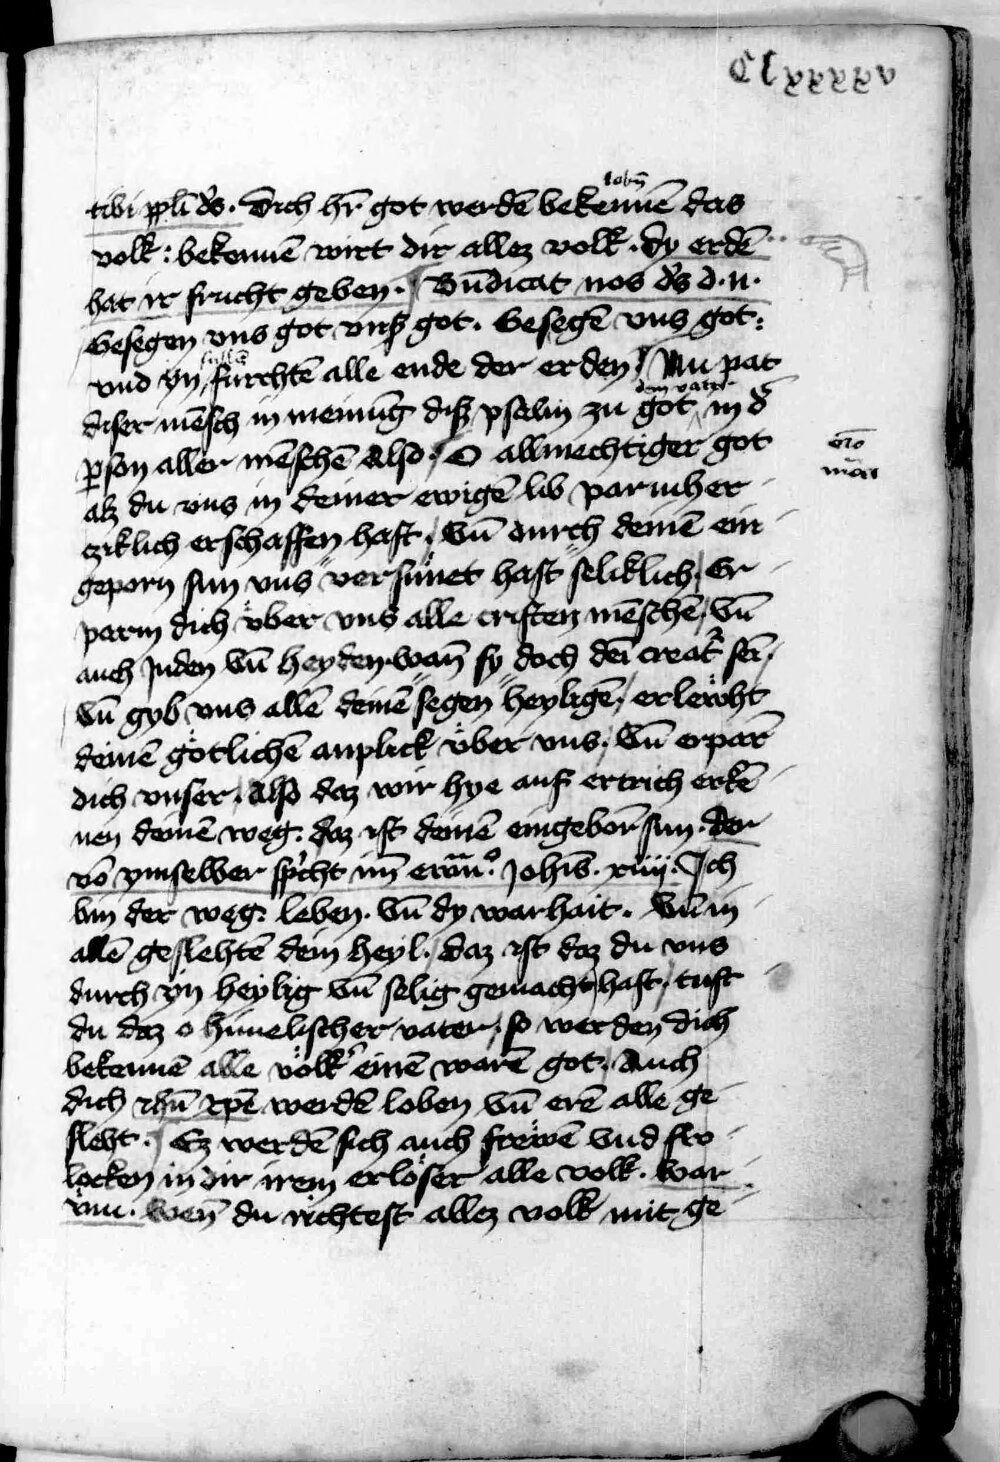 Clxxxxv
tibi ppli ds. Dich hr got werdē bekennē das
lobn̄
volk: bekennē wirt dir allez volk. dy erdē
hat ir frucht geben. Bn̄dicat nos ds d. n.
Gesegen vns got vnß got. Gesegē vns got:
vnd yn fürchtē alle ende der erden Nu pat
süllē
diser mēsch in meinūg diß pselm zu got in d̄
dem vater
pson aller mēschē Also O allmechtiger got
oro
alz du vns in deiner ewigē lib parmher
cziklich erschaffen hast. Vn̄ durch deinē ein
geporn sun vns versünet hast seliklich Er
parm dich über vns alle cristen mēschē Vn̄
auch Juden Vn̄ heyden wan̄ sy doch dei creatr sei
Vn̄ gyb vns allē deinē segen heyligē erlewht
deinē götlichē anplick über vns. Vn̄ erparm̄
dich vnser. Also daz wir hye auf ertrich erkē
nen deinē weg: daz ist deinē eingeborn̄ sun. der
vō ymselber spcht im ewān. Johis. xiiij. Ich
bin der weg: leben. Vn̄ dy warhait. Vn̄ in
allē geslehtē dein heyl. daz ist daz du vns
durch yn heylig Vn̄ selig gemacht hast tust
du daz o himelischer vater so werden dich
bekennē alle völkr einē warē got. Auch
dich ihū xpē werdē loben Vn̄ erē alle ge
sleht. Ez werdē sich auch frewē Vnd fro
locken in dir irem erlöser alle volk. War
vm. Wen̄ du richtest allez volk mit ge